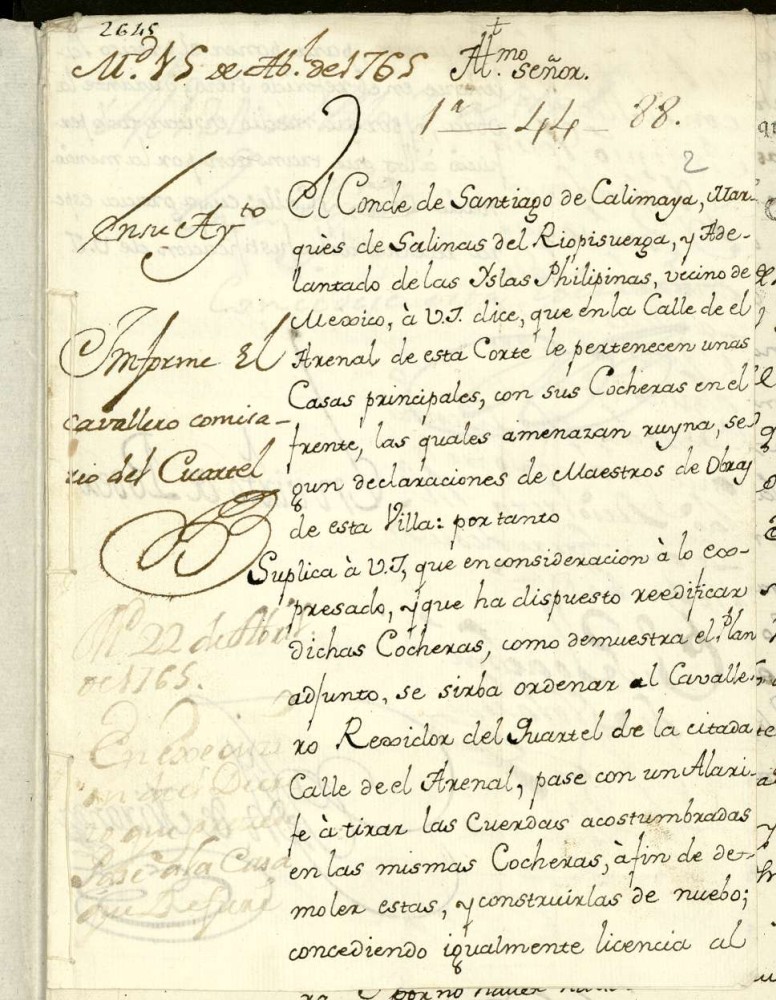 2645
M.d 15 de Ab.l de 1765
Yll.mo señor.
1a — 44 — 88.
2
En su Ay.to
Informe El
cavallero comisa-
rio del Cuartel
El Conde de Santiago de Calimaya, Mar-
quès de Salinas del Riopisuerga, y Ade-
lantado de las Yslas Philipinas, vecino de
Mexico, à V.I. dice, que en la Calle de el
Arenal de esta Corte le pertenecen unas
Casas principales, con sus Cocheras en el
frente, las quales amenazan ruyna, se-
gun declaraciones de Maestros de Obras
de esta Villa: por tanto
Suplica à V.I, que en consideracion à lo ex-
presado, y que ha dispuesto reedificar
dichas Cocheras, como demuestra el Plan
adjunto, se sirba ordenar al Cavalle-
ro Rexidor del Quartel de la citada
Calle de el Arenal, pase con un Alari-
fe à tirar las Cuerdas acostumbradas
en las mismas Cocheras, à fin de de-
moler estas, y construirlas de nuebo;
concediendo igualmente licencia al
M.d 22 de Abril
de 1765.
En execuzi
on de el Decre
to que
a la Casa